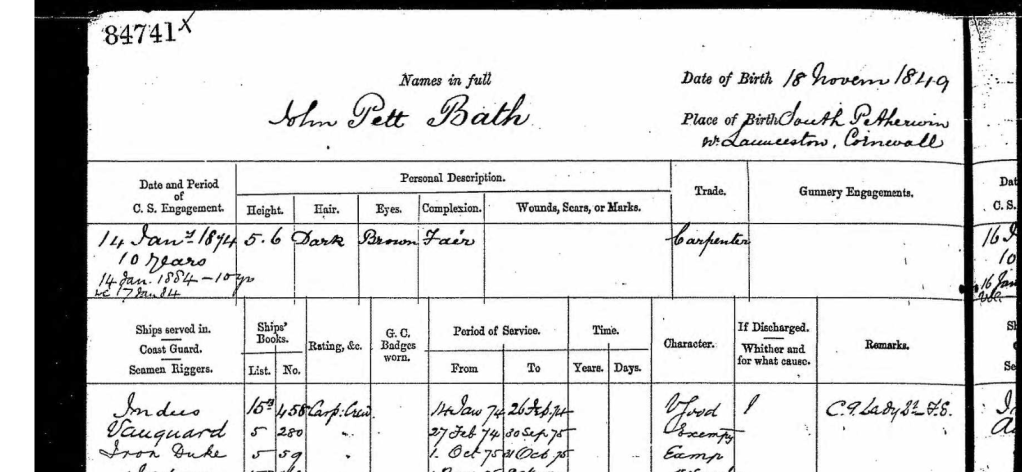 84741 X
Names in full
John Pett Bath
Date of Birth 18 Novem 1849
Place of Birth South Petherwin
Nr. Launceston, Cornwall
Date and Period of C. S. Engagement.
Personal Description.
Trade.
Gunnery Engagements.
Height. Hair. Eyes. Complexion. Wounds, Scars, or Marks.
14 Jany 1874 5.6 Dark Brown Fair Carpenter
10 Years
14 Jan. 1884 – 10 yrs
17 Jan 84
Ships served in.
Coast Guard.
Seamen Riggers.
Ships' Books.
List. No.
Rating, &c.
G. C. Badges worn.
Period of Service.
From To
Time.
Years. Days.
Character.
If Discharged.
Whither and for what cause.
Remarks.
Indus 15 458 Carp: Crew 14 Jan 74 26 Feb. 74 V Good
Vanguard 5 280 " 27 Feb 74 30 Sep. 75 Exempy
Iron Duke 5 59 " 1 Oct 75 31 Oct 75
Dat
C. S.
16 J
10
16 Jan
Sh
Co
Se